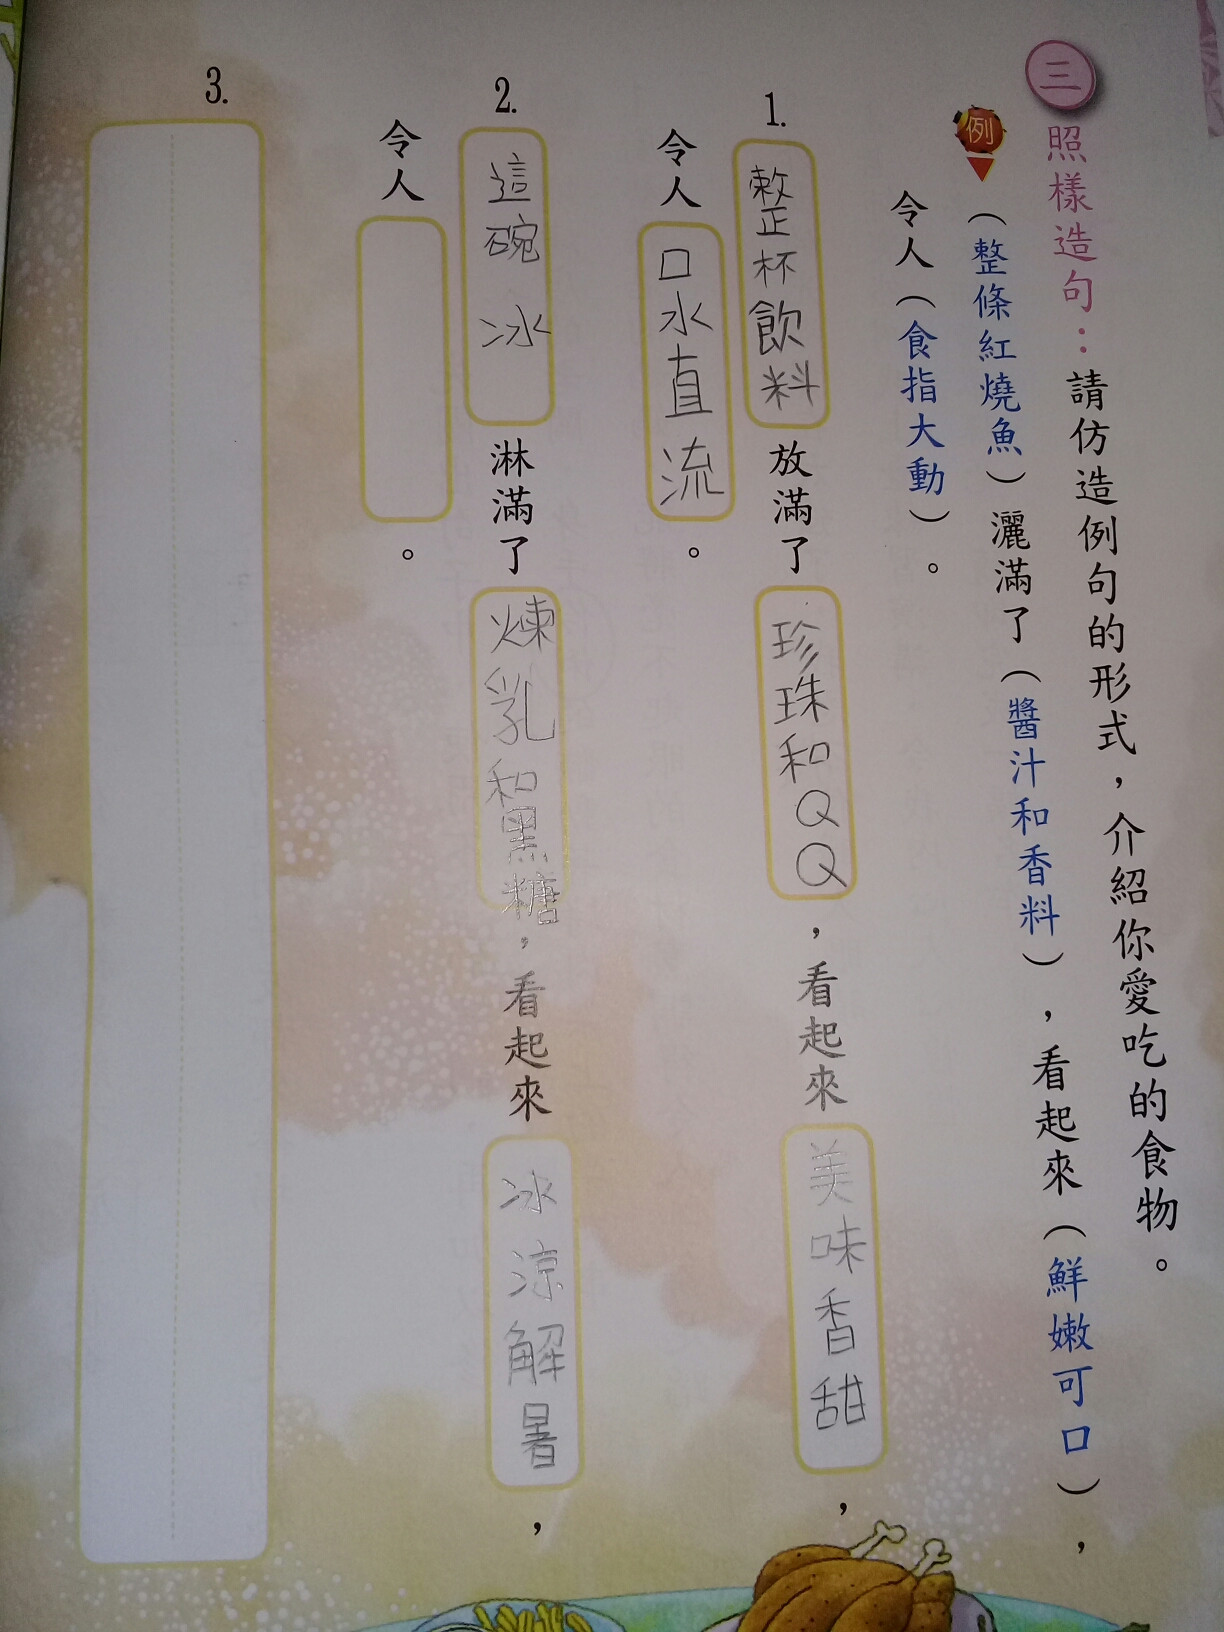 三 照樣造句：請仿造例句的形式，介紹你愛吃的食物。
例（整條紅燒魚）灑滿了（醬汁和香料），看起來（鮮嫩可口），
令人（食指大動）。
1. 整杯飲料放滿了珍珠和QQ，看起來美味香甜，
令人口水直流。
2. 這碗冰淋滿了煉乳和黑糖，看起來冰涼解暑，
令人。
3.